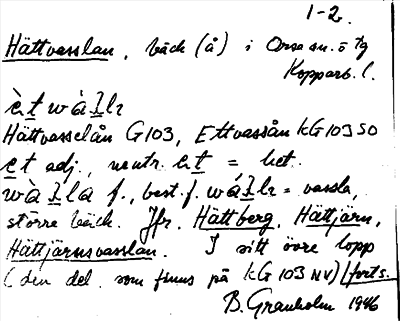 1-2.
Hättvasslan, bäck (å) i Orsa sn. o tg
Kopparb. l.
è̀t wàslr
Hättvasselån G103, Ettvassån kG103 SO
et adj., neutr. et = het.
wàsla f., best. f. wáslr = vassla,
större bäck. Jfr. Hättberg, Hättjärn,
Hättjärnsvasslan. I sitt övre lopp
(den del som finns på kG 103 NV) | forts.
B. Granholm 1946